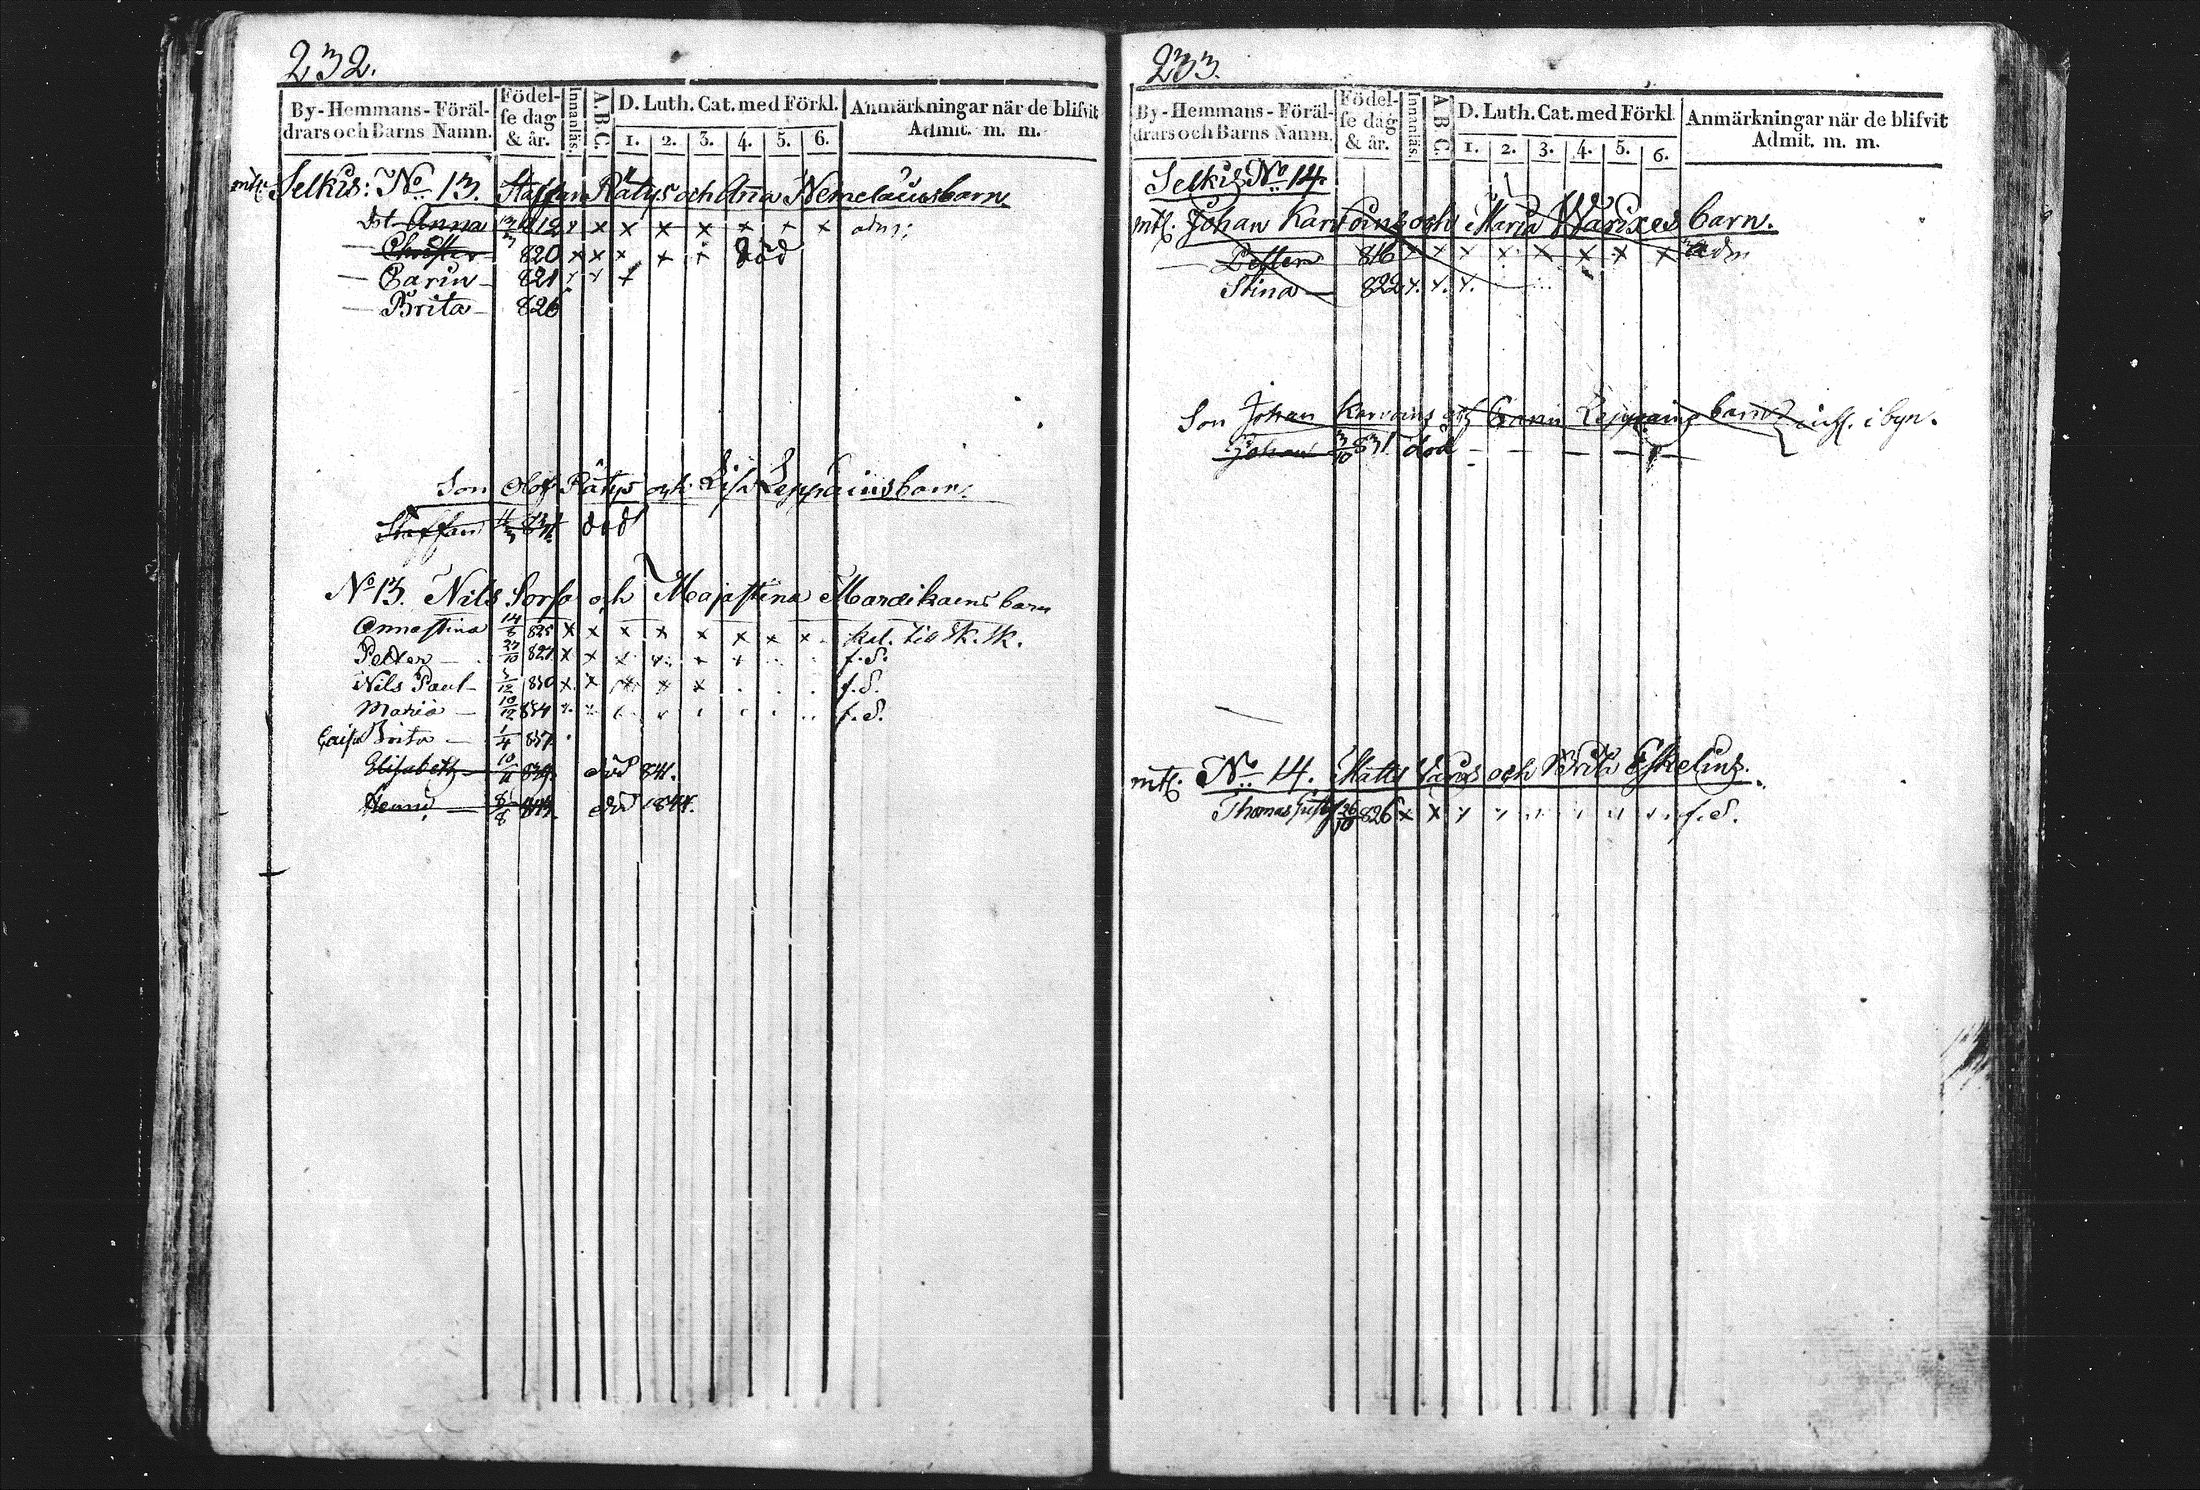 232.
By-Hemmans-Föräl-
drars och Barns Namn.
Födel-
se dag
& år.
Innanläs.
A.B.C.
D. Luth. Cat. med Förkl.
1. 2. 3. 4. 5. 6.
Anmärkningar när de blifvit
Admit. m. m.
Selkis: No 13. Staffan Rätys och Anna Nemelainsbarn
Anna 812 x x x x x x x x adm:
Christer 820 x x x x x död
Carin 821 x x x
Brita 826
Son Olof Rätys och Lisa Leppäinsbarn.
Staffan 831 död
No 13. Nils Sorsa och Majastina Mardikains barn
Annastina 14/8 825 x x x x x x x x kal. till Sk. Sk.
Petter 27/10 827 x x x x x x f. d.
Nils Paul 5/12 830 x x x x x f. d.
Maria 10/12 834 f. d.
Caisa Brita 1/4 837
Elisabeth 10/11 839 död 841.
Henric 8/8 död 1844.
233.
By-Hemmans-Föräl-
drars och Barns Namn.
Födel-
se dag
& år.
Innanläs.
A B C.
D. Luth. Cat. med Förkl.
1. 2. 3. 4. 5. 6.
Anmärkningar när de blifvit
Admit. m. m.
Selkis No 14.
mtl. Johan Karvoins och Maria Warixes barn.
Petter 816 x x x x x x x x adm
Stina 822 x. x. x.
Son Johan Karvoins och Carin Leppäins barn i byn.
Johan 3/10 831 död
mtl. No 14. Matts Varis och Brita Eskelins.
Thomas Gustaf 26/10 826 x x f. d.